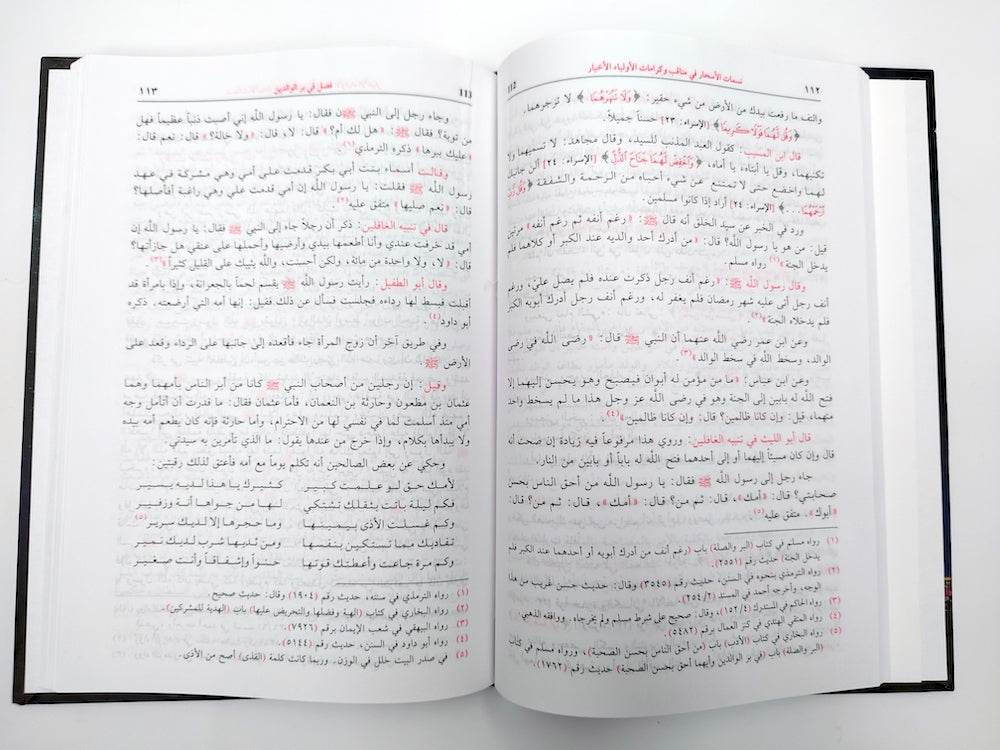 ١١٢
نسمات الأسحار في مناقب وكرامات الأولياء الأخيار
والتف ما رفعت بيدك من الأرض من شيء حقير: ﴿وَلَا تَنْهَرْهُمَا﴾ لا تزجرهما.
﴿وَقُل لَّهُمَا قَوْلًا كَرِيمًا﴾ [الإسراء: ٢٣] حسناً جميلاً.
قال ابن المسيب: كقول العبد المذنب للسيد، وقال مجاهد: لا تسميهما ولا
تكنيهما، وقل يا أبتاه، يا أماه، ﴿وَٱخْفِضْ لَهُمَا جَنَاحَ ٱلذُّلِّ﴾ [الإسراء: ٢٤] ألن جانبك
لهما واخضع حتى لا تمتنع عن شيء أحباه من الرحمة والشفقة ﴿وَقُل رَّبِّ
ٱرْحَمْهُمَا...﴾ [الإسراء: ٢٤] أراد إذا كانوا مسلمين.
ورد في الخبر عن سيد الخلق أنه قال ﷺ: «رغم أنفه ثم رغم أنفه» مرتين
قيل: من هو يا رسول الله؟ قال: «من أدرك أحد والديه عند الكبر أو كلاهما فلم
يدخل الجنة»(١) رواه مسلم.
وقال رسول الله ﷺ: «رغم أنف رجل ذكرت عنده فلم يصل عليَّ، ورغم
أنف رجل أتى عليه شهر رمضان فلم يغفر له، ورغم أنف رجل أدرك أبويه الكبر
فلم يدخلاه الجنة»(٢).
وعن ابن عمر رضي الله عنهما أن النبي ﷺ قال: «رضى الله في رضى
الوالد، وسخط الله في سخط الوالد»(٣)
وعن ابن عباس: «ما من مؤمن له أبوان فيصبح وهو يحسن إليهما إلا
فتح الله له بابين إلى الجنة وهو في رضى الله عز وجل هذا ما لم يسخط واحد
منهما، قيل: وإن كانا ظالمين؟ قال: وإن كانا ظالمين»(٤)
قال أبو الليث في تنبيه الغافلين: وروي هذا مرفوعاً فيه زيادة إن صحت أنه
قال وإن كان مسيئاً إليهما أو إلى أحدهما فتح الله له باباً أو بابين من النار.
جاء رجل إلى رسول الله ﷺ فقال: يا رسول الله من أحق الناس بحسن
صحابتي؟ قال: «أمك»، قال: ثم من؟ قال: «أمك»، قال: ثم من؟ قال:
«أبوك». متفق عليه(٥).
(١) رواه مسلم في كتاب (البر والصلة) باب (رغم أنف من أدرك أبويه أو أحدهما عند الكبر فلم
يدخل الجنة) حديث رقم (٢٥٥١).
(٢) رواه الترمذي بنحوه في السنن، حديث رقم (٣٥٤٥) وقال: حديث حسن غريب من هذا
الوجه، وأخرجه أحمد في المسند (٢/٢٥٤).
(٣) رواه الحاكم في المستدرك (٤/١٥٢)، وقال: صحيح على شرط مسلم ولم يخرجاه. ووافقه الذهبي.
(٤) رواه المتقي الهندي في كنز العمال برقم (٤٥٤٨٢).
(٥) رواه البخاري في كتاب (الأدب) باب (من أحق الناس بحسن الصحبة)، ورواه مسلم في كتاب
(البر والصلة) باب (في بر الوالدين وأيهما أحق بحسن الصحبة) حديث رقم (١٧٦٢).
فصل في بر الوالدين
١١٣
وجاء رجل إلى النبي ﷺ فقال: يا رسول الله إني أصبت ذنباً عظيماً فهل
من توبة؟ فقال ﷺ: «هل لك أم؟» قال: لا، قال: «ولا خالة؟» قال: نعم قال:
«عليك ببرها» ذكره الترمذي(١).
وقالت أسماء بنت أبي بكر قدمت على أمي وهي مشركة في عهد
رسول الله ﷺ فقلت: يا رسول الله إن أمي قدمت علي وهي راغبة أفأصلها؟
قال: «نعم صليها» متفق عليه(٢).
قال في تنبيه الغافلين: ذكر أن رجلاً جاء إلى النبي ﷺ فقال: يا رسول الله إن
أمي قد خرفت عندي وأنا أطعمها بيدي وأرضيها وأحملها على عنقي هل جازأتها؟
قال: «لا، ولا واحدة من مائة، ولكن أحسنت، والله يثيبك على القليل كثيراً»(٣).
وقال أبو الطفيل: رأيت رسول الله ﷺ يقسم لحماً بالجعرانة، وإذا بامرأة قد
أقبلت فبسط لها رداءه فجلست فسأل عن ذلك فقيل: إنها أمه التي أرضعته. ذكره
أبو داود(٤).
وفي طريق آخر أن زوج المرأة جاء فأقعده إلى جانبها على الرداء وقعد على
الأرض ﷺ
وقيل: إن رجلين من أصحاب النبي ﷺ كانا من أبر الناس بأمهما وهما
عثمان بن مظعون وحارثة بن النعمان، فأما عثمان فقال: ما قدرت أن أتأمل وجه
أمي منذ أسلمت لما في نفسي لها من الاحترام، وأما حارثة فإنه كان يطعم أمه بيده
ولا يبدأها بكلام، وإذا خرج من عندها يقول: ما الذي تأمرين به سيدتي.
وحكي عن بعض الصالحين أنه تكلم يوماً مع أمه فأعتق لذلك رقبتين:
لأمك حق لو علمت كبير كثيرك يا هذا لديه يسير
فكم ليلة باتت بثقلك تشتكي لها من جواها أنة وزفير
وكم غسلت الأذى بيمينها وما حجرها إلا لديك سرير(٥)
تفاديك مما تستكين بنفسها ومن ثديها شرب لديك نمير
وكم مرة جاعت وأعطتك قوتها حنواً وإشفاقاً وأنت صغير
(١) رواه الترمذي في سننه، حديث رقم (١٩٠٤) وقال: حديث صحيح.
(٢) رواه البخاري في كتاب (الهبة وفضلها والتحريض عليها) باب (الهدية للمشركين).
(٣) رواه البيهقي في شعب الإيمان برقم (٧٩٢٦).
(٤) رواه أبو داود في السنن، حديث رقم (٥١٤٤).
(٥) في صدر البيت خلل في الوزن. وربما كانت كلمة (القذى) أصح من الأذى.